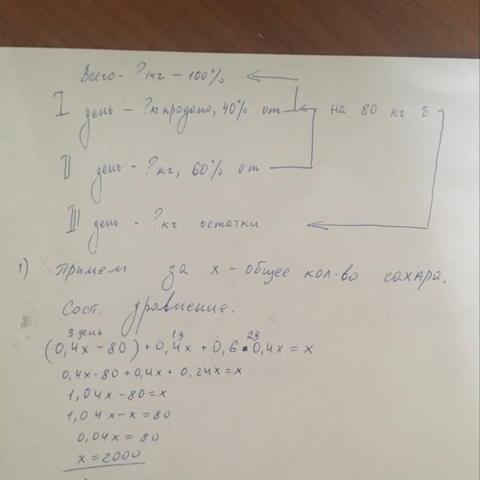 Всего - ? кг - 100%
I день - ? кг продано, 40% от на 80 кг б
II день - ? кг, 60% от
III день - ? кг остатки
1) Примем за x - общее кол-во сахара.
Сост. уравнение.
3 день 1д 2д
(0,4x - 80) + 0,4x + 0,6 · 0,4x = x
0,4x - 80 + 0,4x + 0,24x = x
1,04x - 80 = x
1,04x - x = 80
0,04x = 80
x = 2000